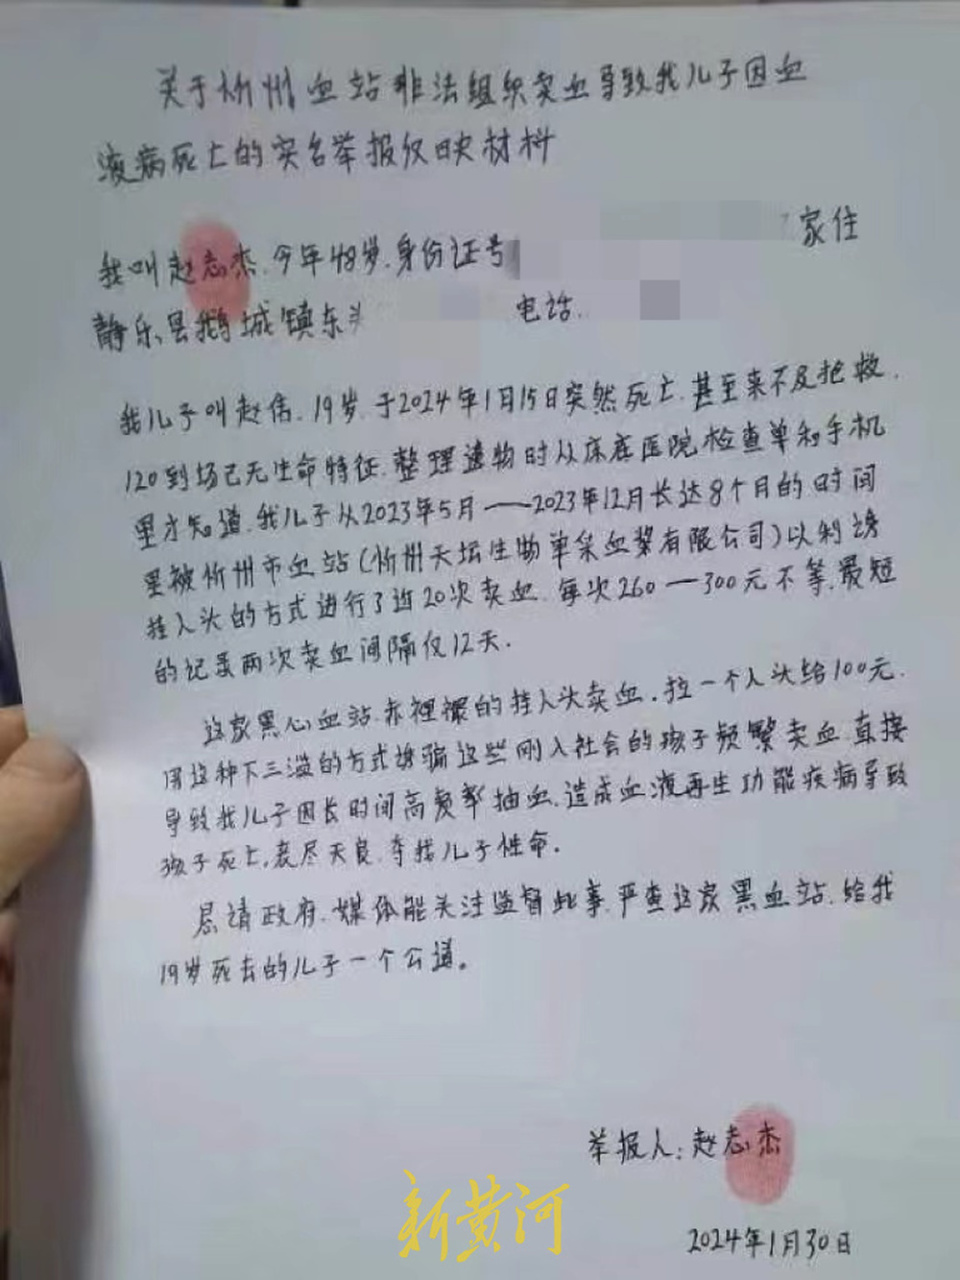 关于忻州血站非法组织卖血导致我儿子因血
液病死亡的实名举报反映材料
我叫赵志杰.今年48岁.身份证号
家住
静乐县鹅城镇东
电话.
我儿子叫赵伟.19岁.于2024年1月15日突然死亡.甚至来不及抢救.
120到场已无生命特征.整理遗物时从床底医院检查单和手机
里才知道.我儿子从2023年5月——2023年12月长达8个月的时间
里被忻州市血站(忻州天坛生物单采血浆有限公司)以利诱
挂人头的方式进行了近20次卖血.每次260—300元不等.最短
的记录两次卖血间隔仅12天.
这家黑心血站.赤裡裸的挂人头卖血.拉一个人头给100元.
用这种下三滥的方式诱骗这些刚入社会的孩子频繁卖血.直接
导致我儿子因长时间高频率抽血.造成血液再生功能疾病导致
孩子死亡.丧尽天良.夺我儿子性命.
恳请政府.媒体能关注监督此事.严查这家黑血站.给我
19岁死去的儿子一个公道。
举报人:赵志杰
2024年1月30日
新黄河